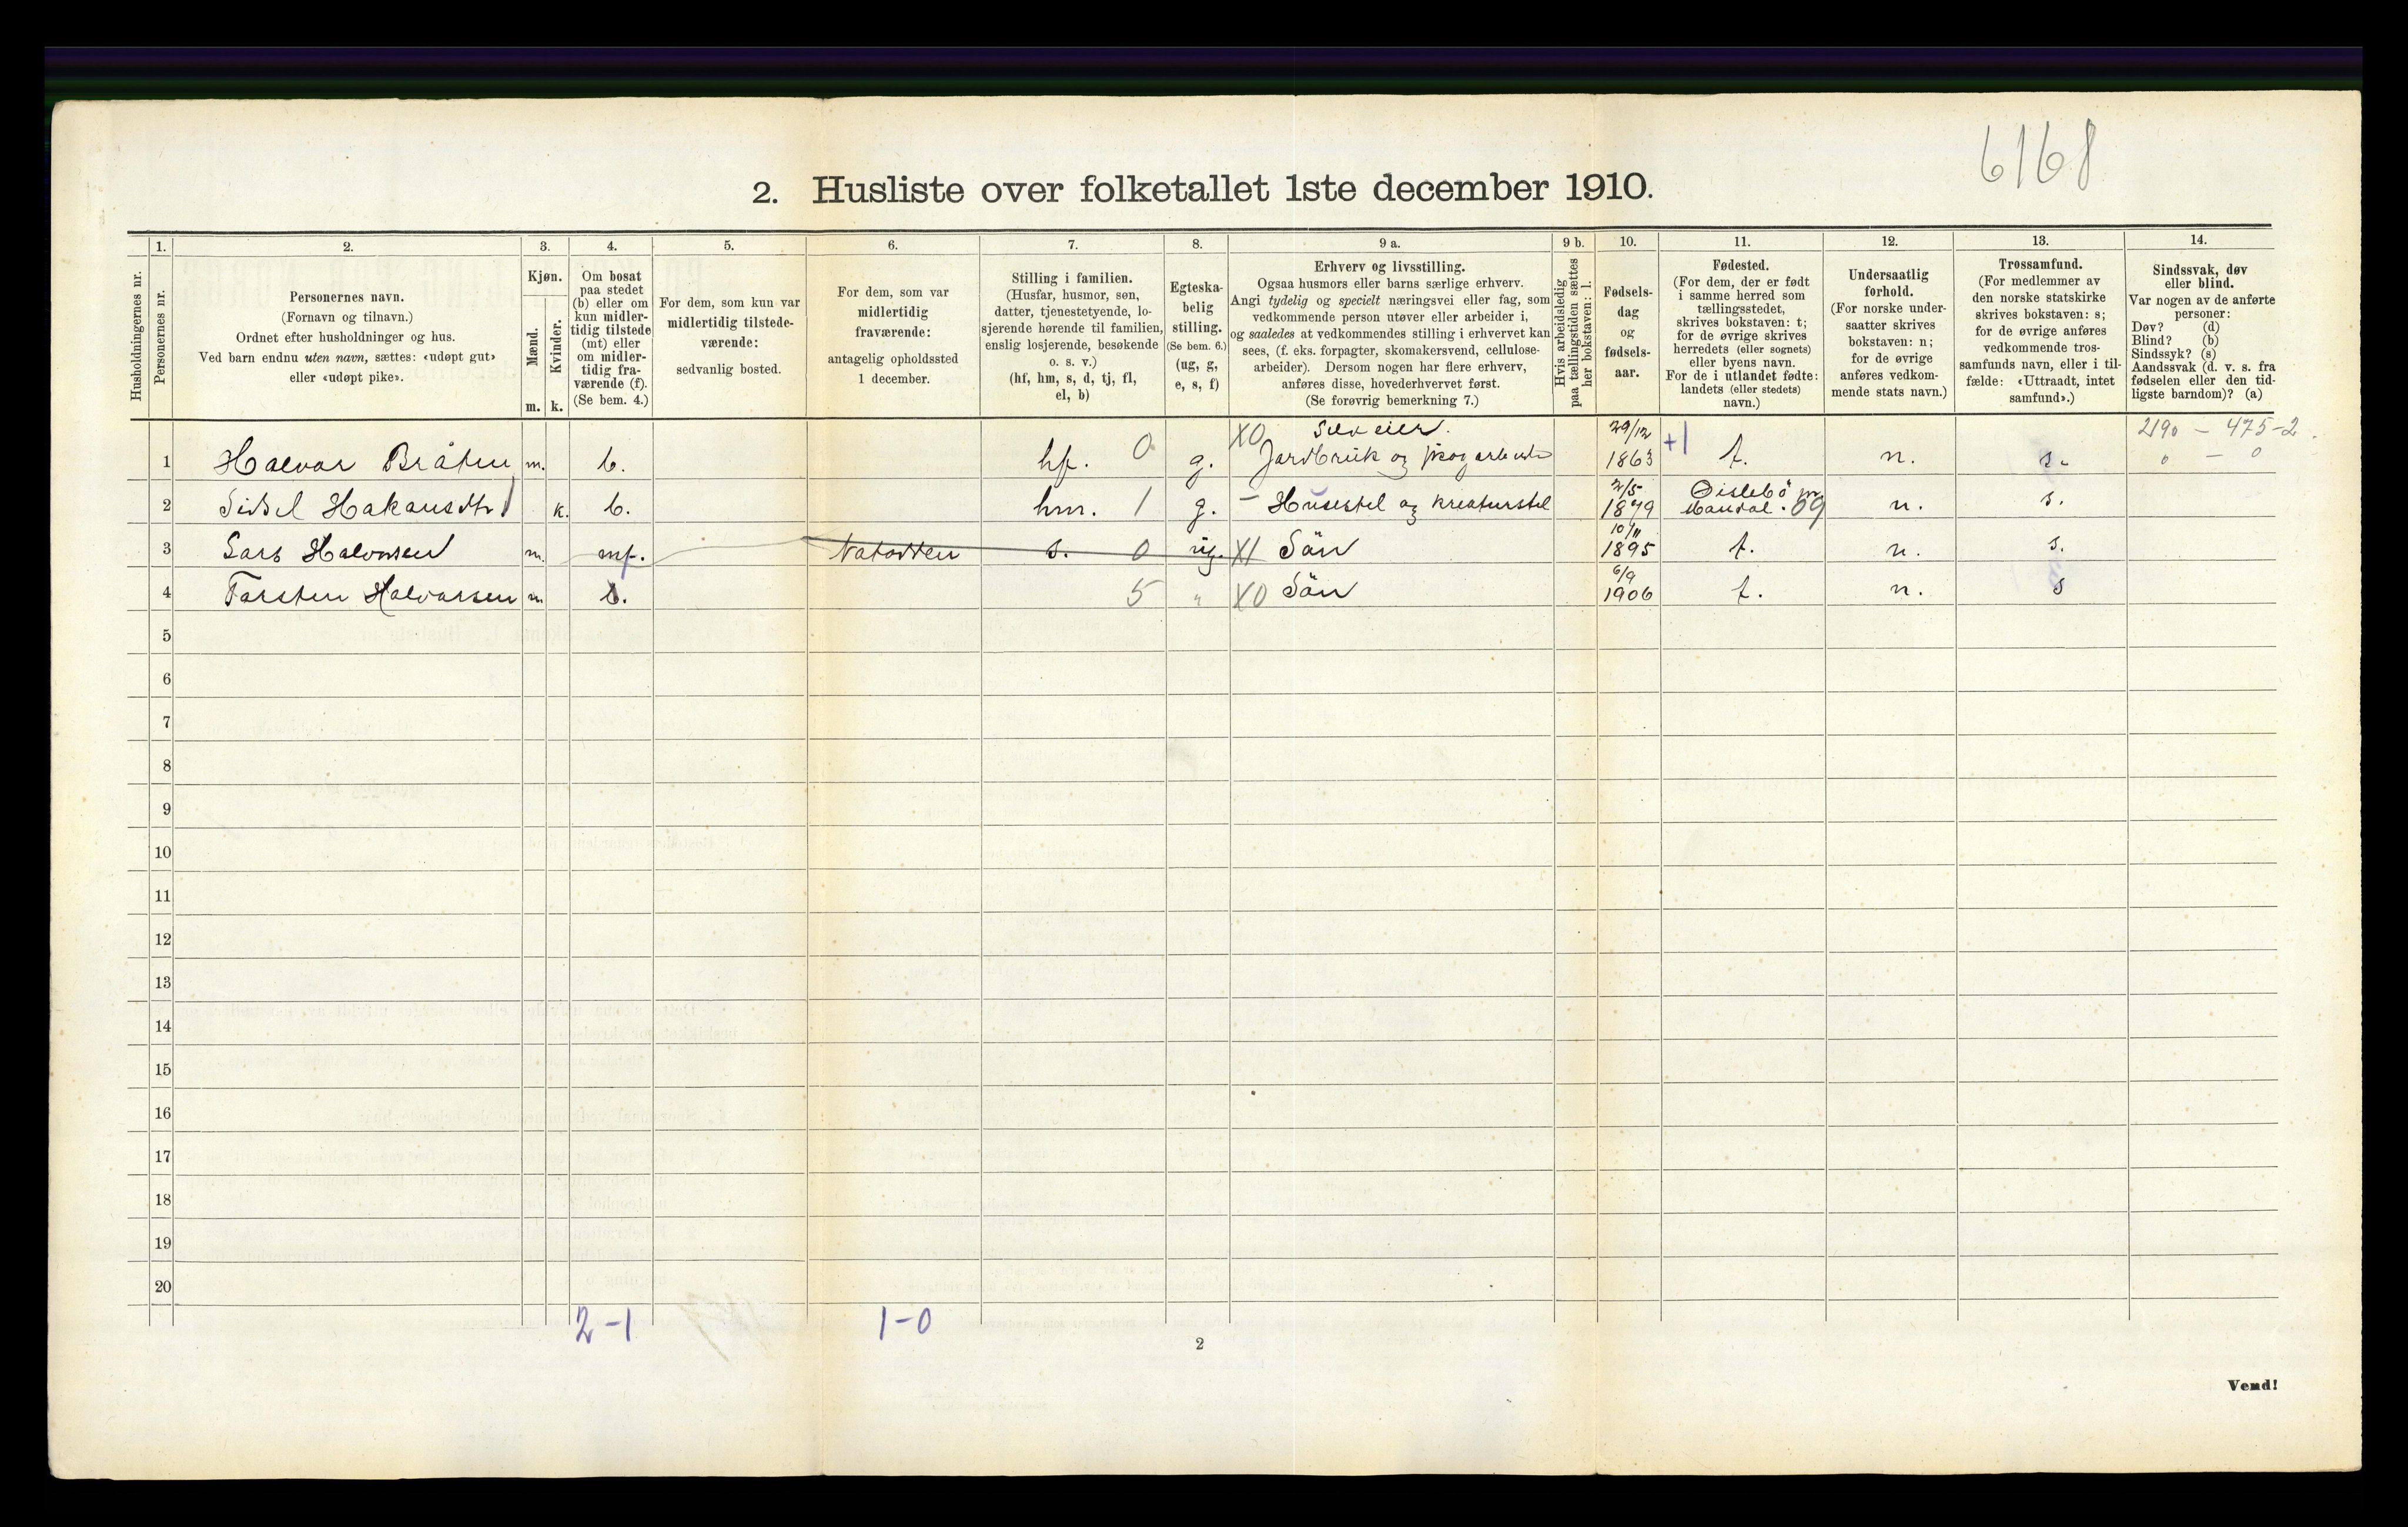 6168
2. Husliste over folketallet 1ste december 1910.
1. 2. 3. 4. 5. 6. 7. 8. 9 a. 9 b. 10. 11. 12. 13. 14.
Husholdningernes nr.
Personernes nr.
Personernes navn.
(Fornavn og tilnavn.)
Ordnet efter husholdninger og hus.
Ved barn endnu uten navn, sættes: «udøpt gut»
eller «udøpt pike».
Kjøn.
Mænd.
Kvinder.
m. k.
Om bosat
paa stedet
(b) eller om
kun midler-
tidig tilstede
(mt) eller
om midler-
tidig fra-
værende (f).
(Se bem. 4.)
For dem, som kun var
midlertidig tilstede-
værende:
sedvanlig bosted.
For dem, som var
midlertidig
fraværende:
antagelig opholdssted
1 december.
Stilling i familien.
(Husfar, husmor, søn,
datter, tjenestetyende, lo-
sjerende hørende til familien,
enslig losjerende, besøkende
o. s. v.)
(hf, hm, s, d, tj, fl,
el, b)
Egteska-
belig
stilling.
(Se bem. 6.)
(ug, g,
e, s, f)
Erhverv og livsstilling.
Ogsaa husmors eller barns særlige erhverv.
Angi tydelig og specielt næringsvei eller fag, som
vedkommende person utøver eller arbeider i,
og saaledes at vedkommendes stilling i erhvervet kan
sees, (f. eks. forpagter, skomakersvend, cellulose-
arbeider). Dersom nogen har flere erhverv,
anføres disse, hovederhvervet først.
(Se forøvrig bemerkning 7.)
Hvis arbeidsledig
paa tællingstiden sættes
her bokstaven: l.
Fødsels-
dag
og
fødsels-
aar.
Fødested.
(For dem, der er født
i samme herred som
tællingsstedet,
skrives bokstaven: t;
for de øvrige skrives
herredets (eller sognets)
eller byens navn.
For de i utlandet fødte:
landets (eller stedets)
navn.)
Undersaatlig
forhold.
(For norske under-
saatter skrives
bokstaven: n;
for de øvrige
anføres vedkom-
mende stats navn.)
Trossamfund.
(For medlemmer av
den norske statskirke
skrives bokstaven: s;
for de øvrige anføres
vedkommende tros-
samfunds navn, eller i til-
fælde: «Uttraadt, intet
samfund».)
Sindssvak, døv
eller blind.
Var nogen av de anførte
personer:
Døv? (d)
Blind? (b)
Sindssyk? (s)
Aandssvak (d. v. s. fra
fødselen eller den tid-
ligste barndom)? (a)
XO Selveier. 29/12 +1 2190 - 475-2.
1 Halvor Bråten m. b. hf. 0 g. Jordbruk og skogarbeide 1863 t. n. s. 0 - 0
2/5 Øislebö
2 Sidsel Hakansdtr k. b. hm. 1 g. - Husstel og kreaturstel 1879 Mandal. 09 n. s.
10/11
3 Lars Halvorsen m. mf. Notodden s. 0 ug. X1 Sön 1895 t. n. s.
6/9
4 Torsten Halvorsen m b. 5 " XO Sön 1906 t. n. s
5
6
7
8
9
10
11
12
13
14
15
16
17
18
19
20
2-1 1-0
2
Vend!